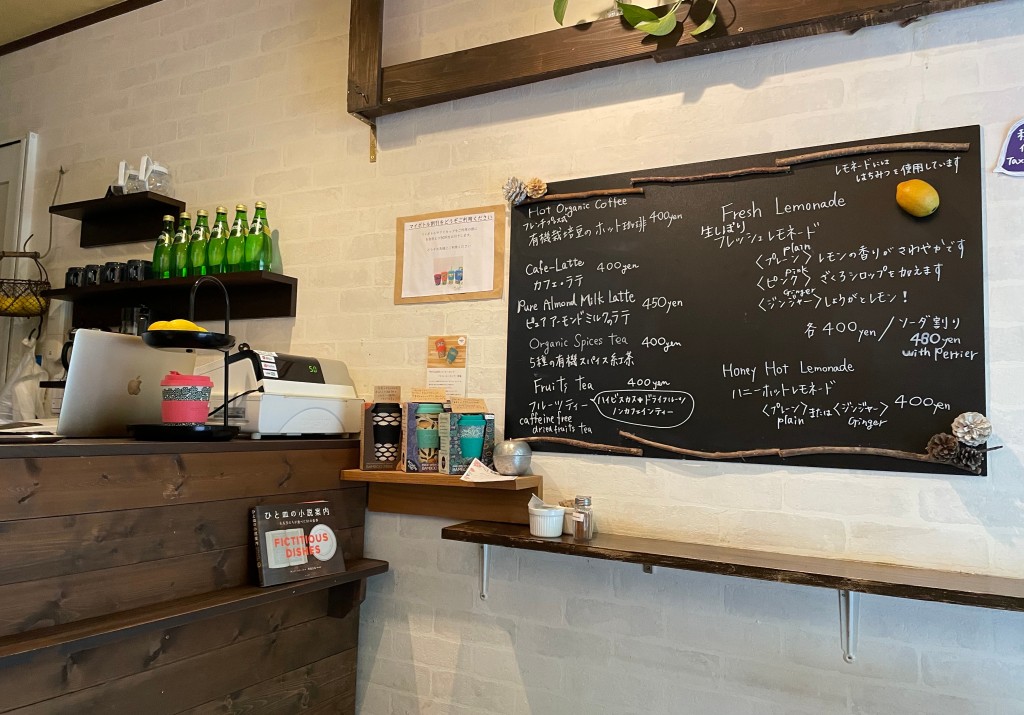 マイボトル割引をどうぞご利用ください
50
ひと皿の小説案内
FICTITIOUS
DISHES
Hot Organic Coffee
フレンチプレスの
有機栽培豆のホット珈琲 400yen
Cafe-Latte 400yen
カフェ・ラテ
Pure Almond Milk Latte 450yen
ピュアアーモンドミルクのラテ
Organic Spices tea 400yen
5種の有機スパイス紅茶
Fruits tea 400yen
フルーツティー
ハイビスカス+ドライフルーツ
ノンカフェインティー
caffeine free
dried fruits tea
レモネードには
はちみつを使用しています
Fresh Lemonade
生しぼり
フレッシュレモネード
plain
〈プレーン〉レモンの香りがさわやかです
pink
〈ピンク〉ざくろシロップを加えます
Ginger
〈ジンジャー〉しょうがとレモン!
各400yen/ソーダ割り
480yen
with Perrier
Honey Hot Lemonade
ハニーホットレモネード
〈プレーン〉または〈ジンジャー〉400yen
plain Ginger